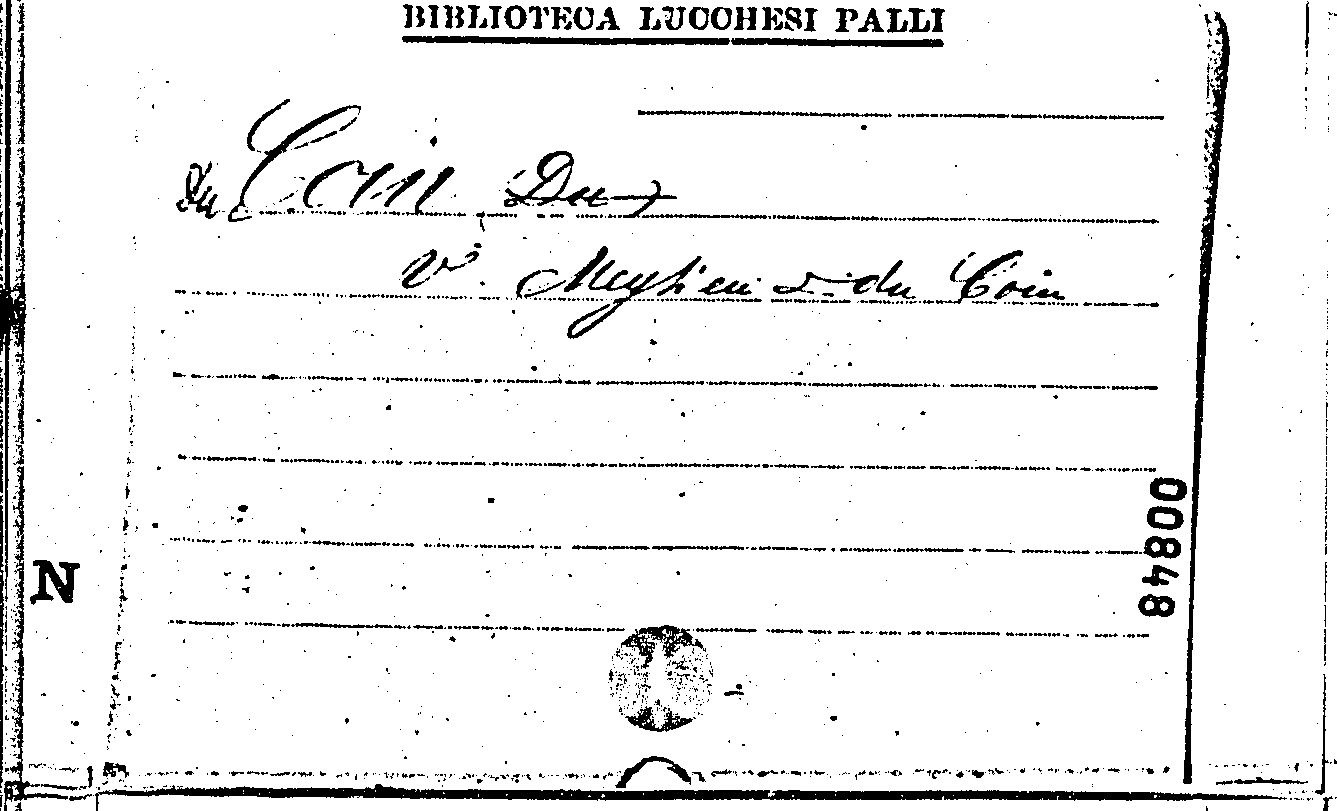 BIBLIOTECA LUCCHESI PALLI
du Coin (Du)
V. Meghen S. du Coin
00848
N